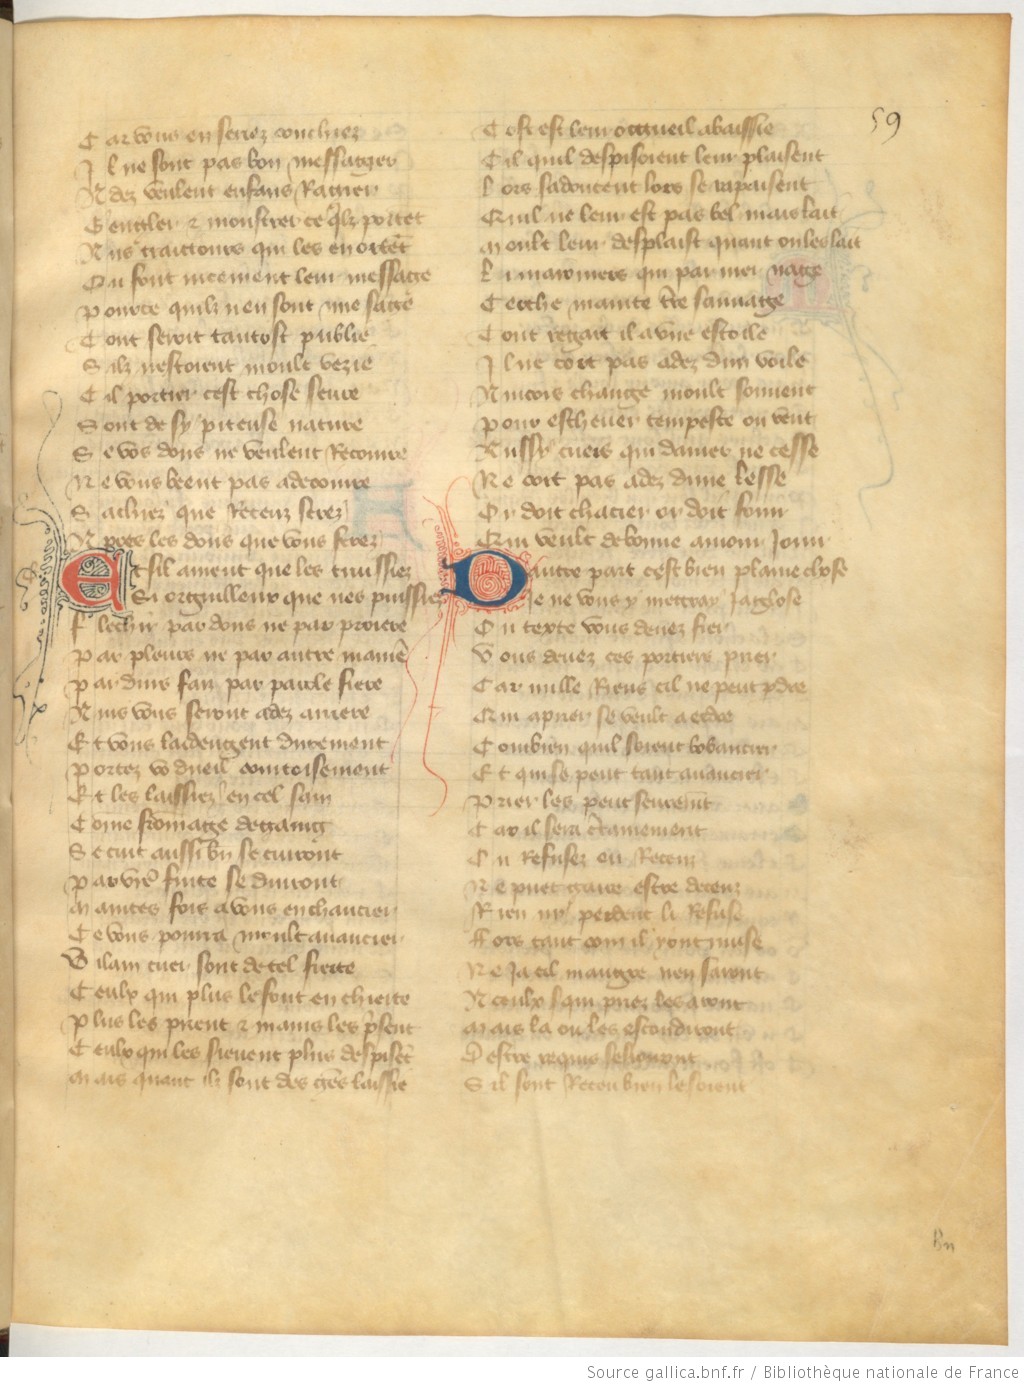 59
Car vous en seriez conchiez
Il ne sont pas bon messagier
Adez veulent enfans Ragier
Gengler & monstrer ce qlz portēt
Aus traitours qui les enortēt
Ou font nicement leur messaige
Pource quilz nen sont mie saige
Tout seroit tantost publie
Silz nestoient moult vezie
Cil portier cest chose seure
Sont de sy piteuse nature
Se vos dons ne veulent Recoivre
Ne vous beent pas a decoivre
Sachiez que Receuz serez
Apres les dons que vous ferez
Et sil ament que les truissiez
Si orguilleux que nes puissiez
Flechir par dons ne par proiere
Par pleurs ne par autre maniē
Par durs fais par parole fiere
Aius vous seront adez arriere
Et vous laidengent durement
Portez vo dueil courtoisement
Et les laissiez en cel sain
Come fromaige de gaing
Se cuit aussi bn se cuiront
Par vrē fuite se duiront
Maintes fois a vous enchaucier
Ce vous pourra moult auancier
Vilain cuer sont de tel fierte
Ceulx qui plus le font en chierte
Plus les prient & mains les psent
Ceulx qui les seruent plus despisēt
Mais quant ilz sont des gēs laissie
Tost est leur orgueil abaissie
Cil quil despisoient leur plaisent
Lors sadoucent lors se rapaisent
Quil ne leur est pas bel mais lait
Moult leur desplaist quant on les lait
Li maronniers qui par mer nage
Cerche mainte tr̄e sauuaige
Tout regart il a vne estoile
Il ne cort pas adez dun voile
Aincois change moult souuent
Pour escheuer tempeste ou vent
Aussy cuers qui damer ne cesse
Ne cort pas adez dune lesse
Or doit chacier or doit fouir
Qui veult de bonne amour Jouir
Dautre part cest bien plaine chose
Je ne vous y mettray Ja glose
Ou texte vous deuez fier
Vous deuez ces portiers prier
Car nulle Riens cil ne peut pdre
Qui a prier se veult aerdre
Combien quil soient bobancier
Et quise peut tant auancier
Prier les peut seuremēt
Car il sera c̄tainement
Ou Refusez ou Receuz
Ne puet gaire estre deceuz
Rien ny perdent li Refuse
Fors tant com il y ont muse
Ne Ja cil maugre nen saront
A ceulx qui priez les aront
Mais la ou les escondiront
Destre requis
Sil sont Receu bien le soient